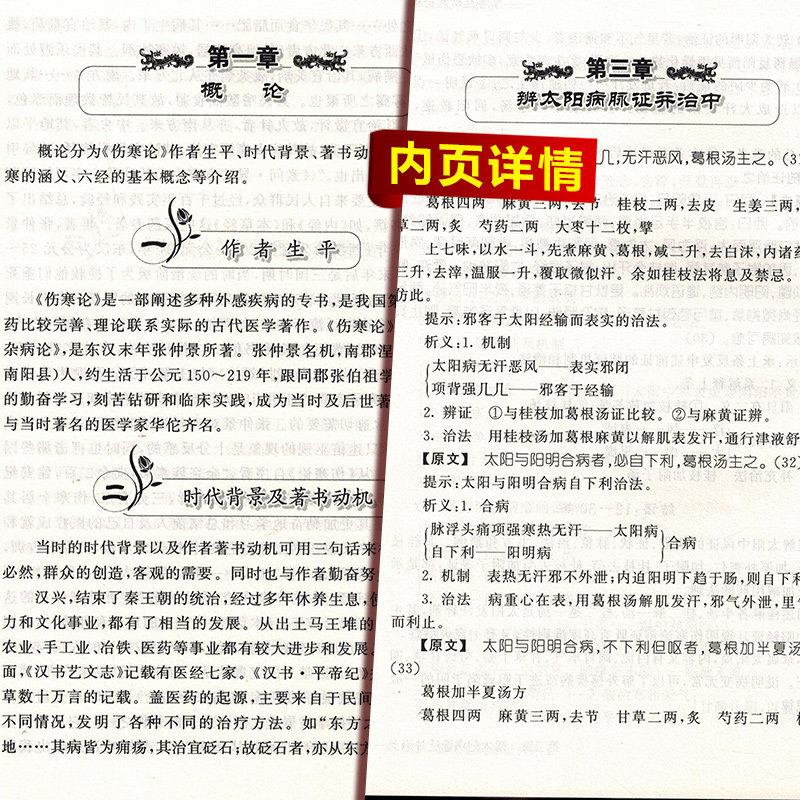 第一章
概 论
概论分为《伤寒论》作者生平、时代背景、著书动
寒的涵义、六经的基本概念等介绍。
一 作者生平
《伤寒论》是一部阐述多种外感疾病的专书,是我国第
药比较完善、理论联系实际的古代医学著作。《伤寒论》
杂病论》,是东汉末年张仲景所著。张仲景名机,南郡涅
南阳县)人,约生活于公元150～219年,跟同郡张伯祖学
的勤奋学习,刻苦钻研和临床实践,成为当时及后世著
与当时著名的医学家华佗齐名。
二 时代背景及著书动机
当时的时代背景以及作者著书动机可用三句话来
必然,群众的创造,客观的需要。同时也与作者勤奋努
汉兴,结束了秦王朝的统治,经过多年休养生息,使
力和文化事业,都有了相当的发展。从出土马王堆的
农业、手工业、冶铁、医药等事业都有较大进步和发展。
面,《汉书艺文志》记载有医经七家。《汉书·平帝纪》
草数十万言的记载。盖医药的起源,主要来自于民间
不同情况,发明了各种不同的治疗方法。如“东方之
地……其病皆为痈疡,其治宜砭石;故砭石者,亦从东方
内页详情
第三章
辨太阳病脉证并治中
几,无汗恶风,葛根汤主之。(31
葛根四两 麻黄三两,去节 桂枝二两,去皮 生姜三两,
草二两,炙 芍药二两 大枣十二枚,擘
上七味,以水一斗,先煮麻黄、葛根,减二升,去白沫,内诸药
三升,去滓,温服一升,覆取微似汗。余如桂枝法将息及禁忌。
仿此。
提示:邪客于太阳经输而表实的治法。
析义:1. 机制
太阳病无汗恶风——表实邪闭
项背强几几——邪客于经输
2. 辨证 ①与桂枝加葛根汤证比较。②与麻黄证辨。
3. 治法 用桂枝汤加葛根麻黄以解肌表发汗,通行津液舒
【原文】 太阳与阳明合病者,必自下利,葛根汤主之。(32)
提示:太阳与阳明合病自下利治法。
析义:1. 合病
脉浮头痛项强寒热无汗——太阳病
自下利——阳明病
合病
2. 机制 表热无汗邪不外泄;内迫阳明下趋于肠,则自下利
3. 治法 病重心在表,用葛根汤解肌发汗,邪气外泄,里气
而利止。
【原文】 太阳与阳明合病,不下利但呕者,葛根加半夏汤
(33)
葛根加半夏汤方
葛根四两 麻黄三两,去节 甘草二两,炙 芍药二两